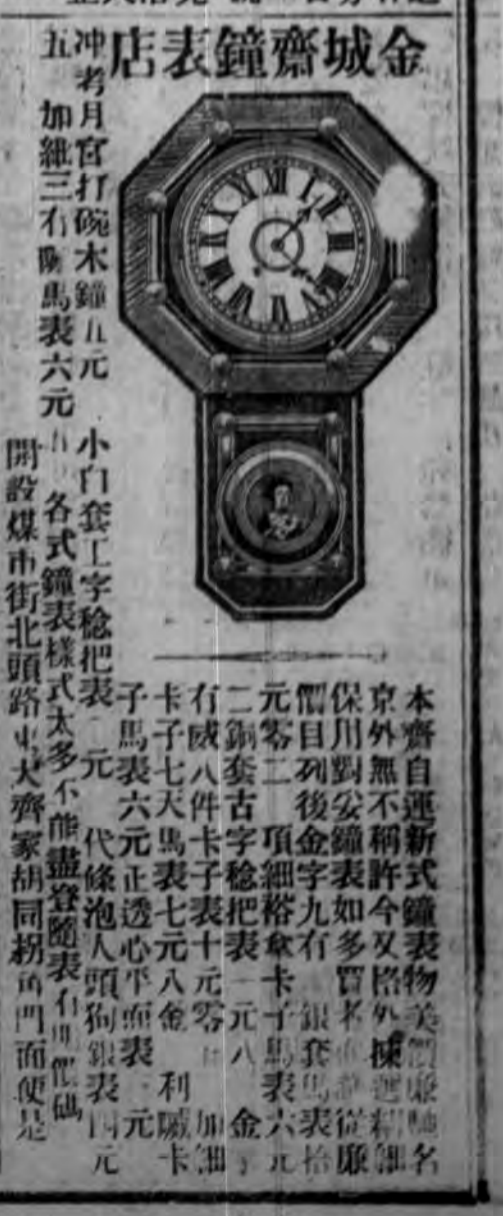 金城齋鐘表店
本齋自運新式鐘表物美價廉馳名
京外無不稱許今又格外揀選精細
保用對安鐘表如多買者從廉
價目列後金字九有 銀套馬表拾
元零二 項細裕傘卡子馬表六元
二銅套古字稔把表一元八 金
有威八件卡子表十元零 加細
卡子七天馬表七元八金 利 卡
子馬表六元正透心平面表 元
代條泡人頭狗銀表四元
小白套工字稔把表 元
冲考月官打碗木鐘五元
五 加細三有 馬表六元
各式鐘表樣式太多不能盡登隨表有 價碼
開設煤市街北頭路 大齊家胡同拐角門面便是